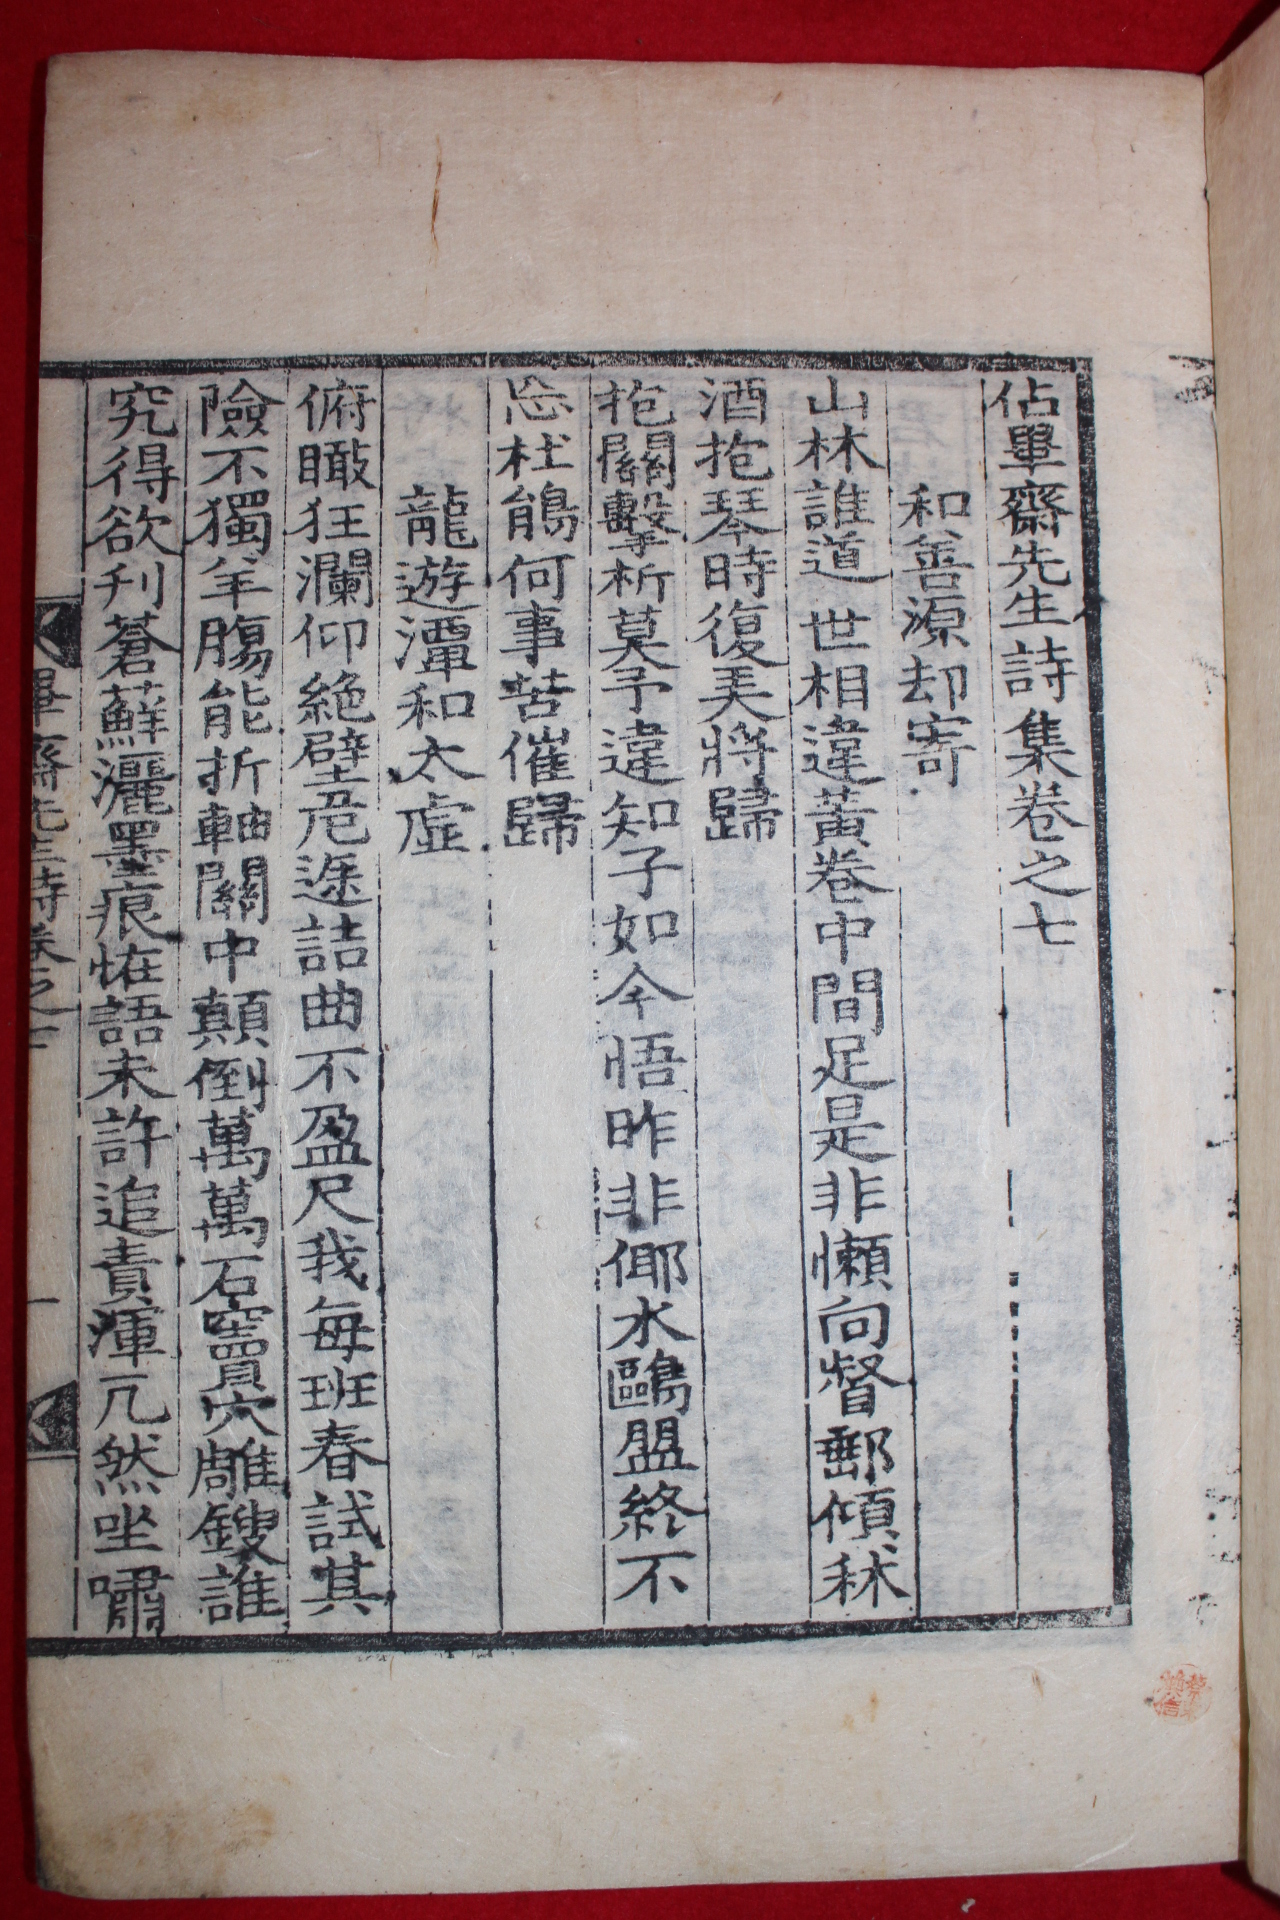 佔畢齋先生詩集卷之七
和善源却寄
山林誰道世相違黃卷中間足是非懶向督郵傾秫
酒抱琴時復美將歸
抱關擊柝莫予違知子如今悟昨非鄊水鷗盟終不
忘杜鵑何事苦催歸
龍遊潭和太虛
俯瞰狂瀾仰絶壁危途詰曲不盈尺我每班春試其
險不獨羊腸能折軸關中顛倒萬萬石竇穴雕鎪誰
究得欲刋蒼蘚灑墨痕恠語未許追責渾兀然坐嘯
畢齋先生詩卷之七
一